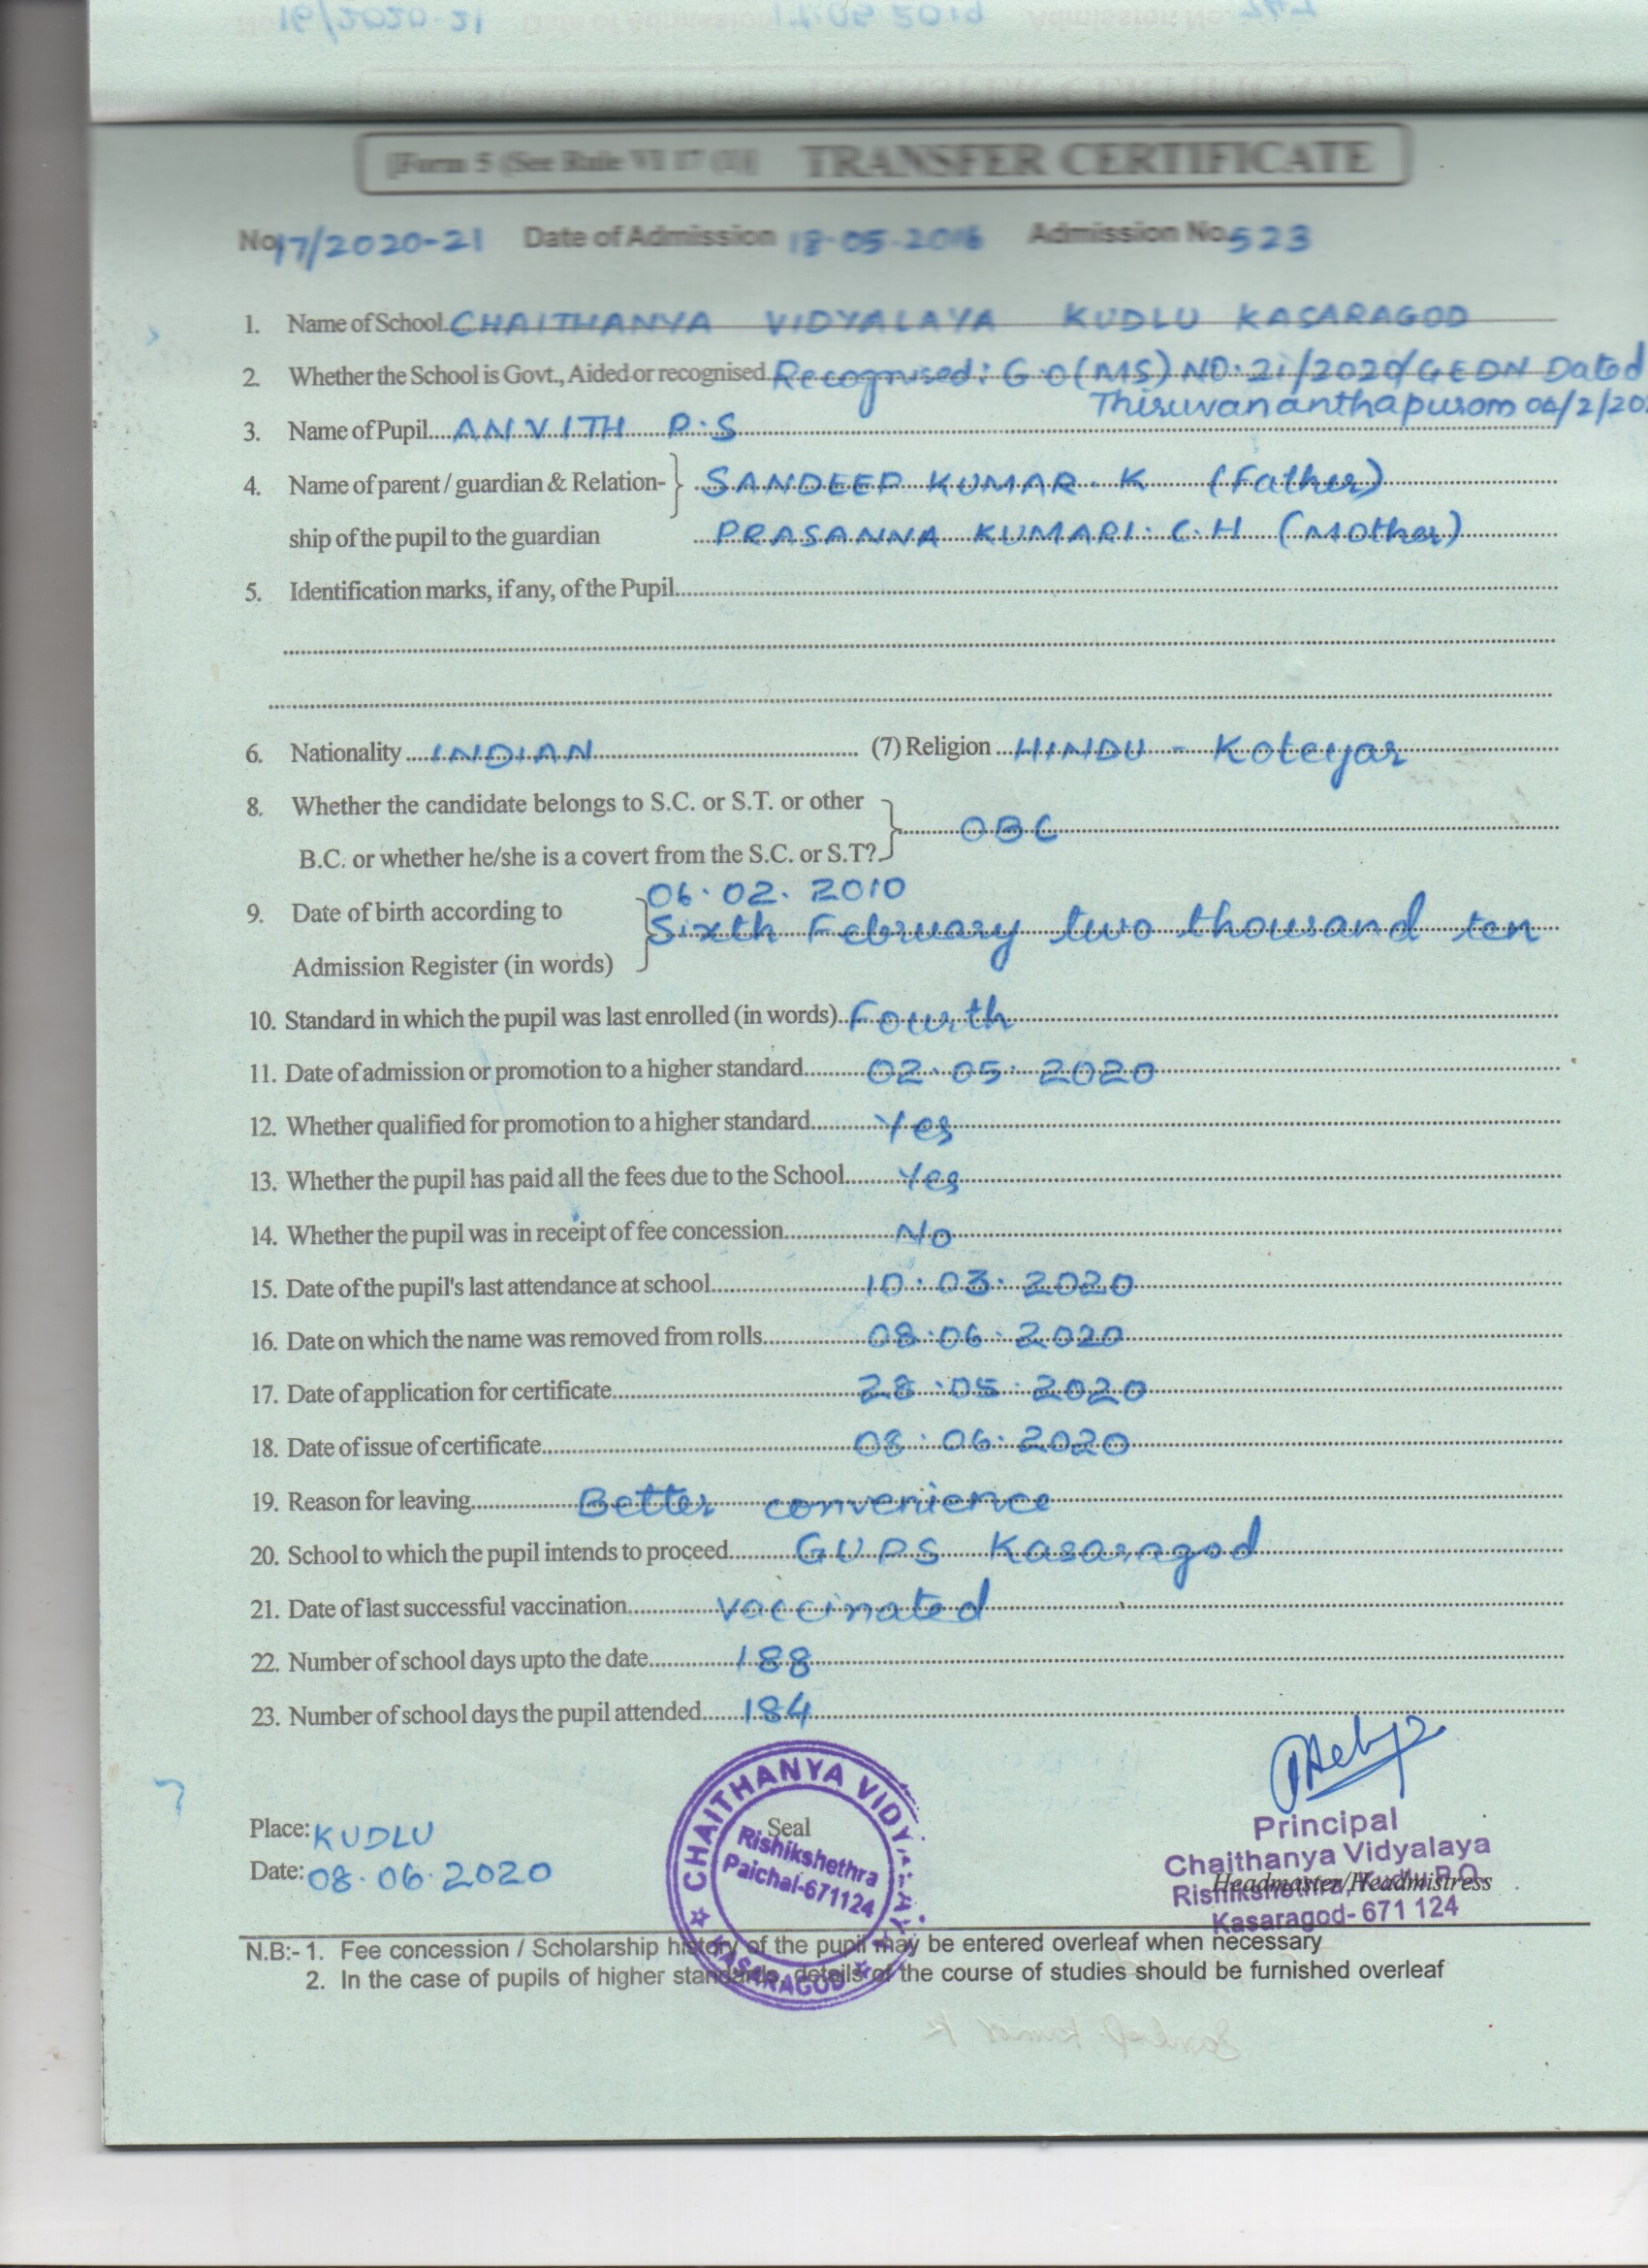 No. 16/2020-21 Date of Admission 2019 Admission No.
[Form 5 (See Rule VI 17 (1)] TRANSFER CERTIFICATE
No. 17/2020-21 Date of Admission 18-05-2016 Admission No. 523
1. Name of School CHAITHANYA VIDYALAYA KUDLU KASARAGOD
2. Whether the School is Govt., Aided or recognised Recognised: G.O(MS) NO: 21/2020/GEDN Dated
Thiruvananthapuram 04/2/
3. Name of Pupil ANVITH P.S
4. Name of parent / guardian & Relation- } SANDEEP KUMAR. K (Father)
ship of the pupil to the guardian PRASANNA KUMARI. C.H (Mother)
5. Identification marks, if any, of the Pupil
6. Nationality INDIAN (7) Religion HINDU - Koteyar
8. Whether the candidate belongs to S.C. or S.T. or other
B.C. or whether he/she is a covert from the S.C. or S.T? } OBC
06.02.2010
9. Date of birth according to } Sixth February two thousand ten
Admission Register (in words)
10. Standard in which the pupil was last enrolled (in words) Fourth
11. Date of admission or promotion to a higher standard 02.05.2020
12. Whether qualified for promotion to a higher standard Yes
13. Whether the pupil has paid all the fees due to the School Yes
14. Whether the pupil was in receipt of fee concession No
15. Date of the pupil's last attendance at school 10.03.2020
16. Date on which the name was removed from rolls 08.06.2020
17. Date of application for certificate 28.05.2020
18. Date of issue of certificate 08.06.2020
19. Reason for leaving Better convenience
20. School to which the pupil intends to proceed GUPS Kasaragod
21. Date of last successful vaccination vaccinated
22. Number of school days upto the date 188
23. Number of school days the pupil attended 184
Place: KUDLU
Date: 08.06.2020
Seal
CHAITHANYA VIDYALAYA
Rishikshethra
Paichal-671124
KASARAGOD
Principal
Chaithanya Vidyalaya
Rishikshethra, Kudlu P.O.
Headmaster/Headmistress
Kasaragod- 671 124
N.B:- 1. Fee concession / Scholarship history of the pupil may be entered overleaf when necessary
2. In the case of pupils of higher standards, details of the course of studies should be furnished overleaf
Sandeep Kumar K